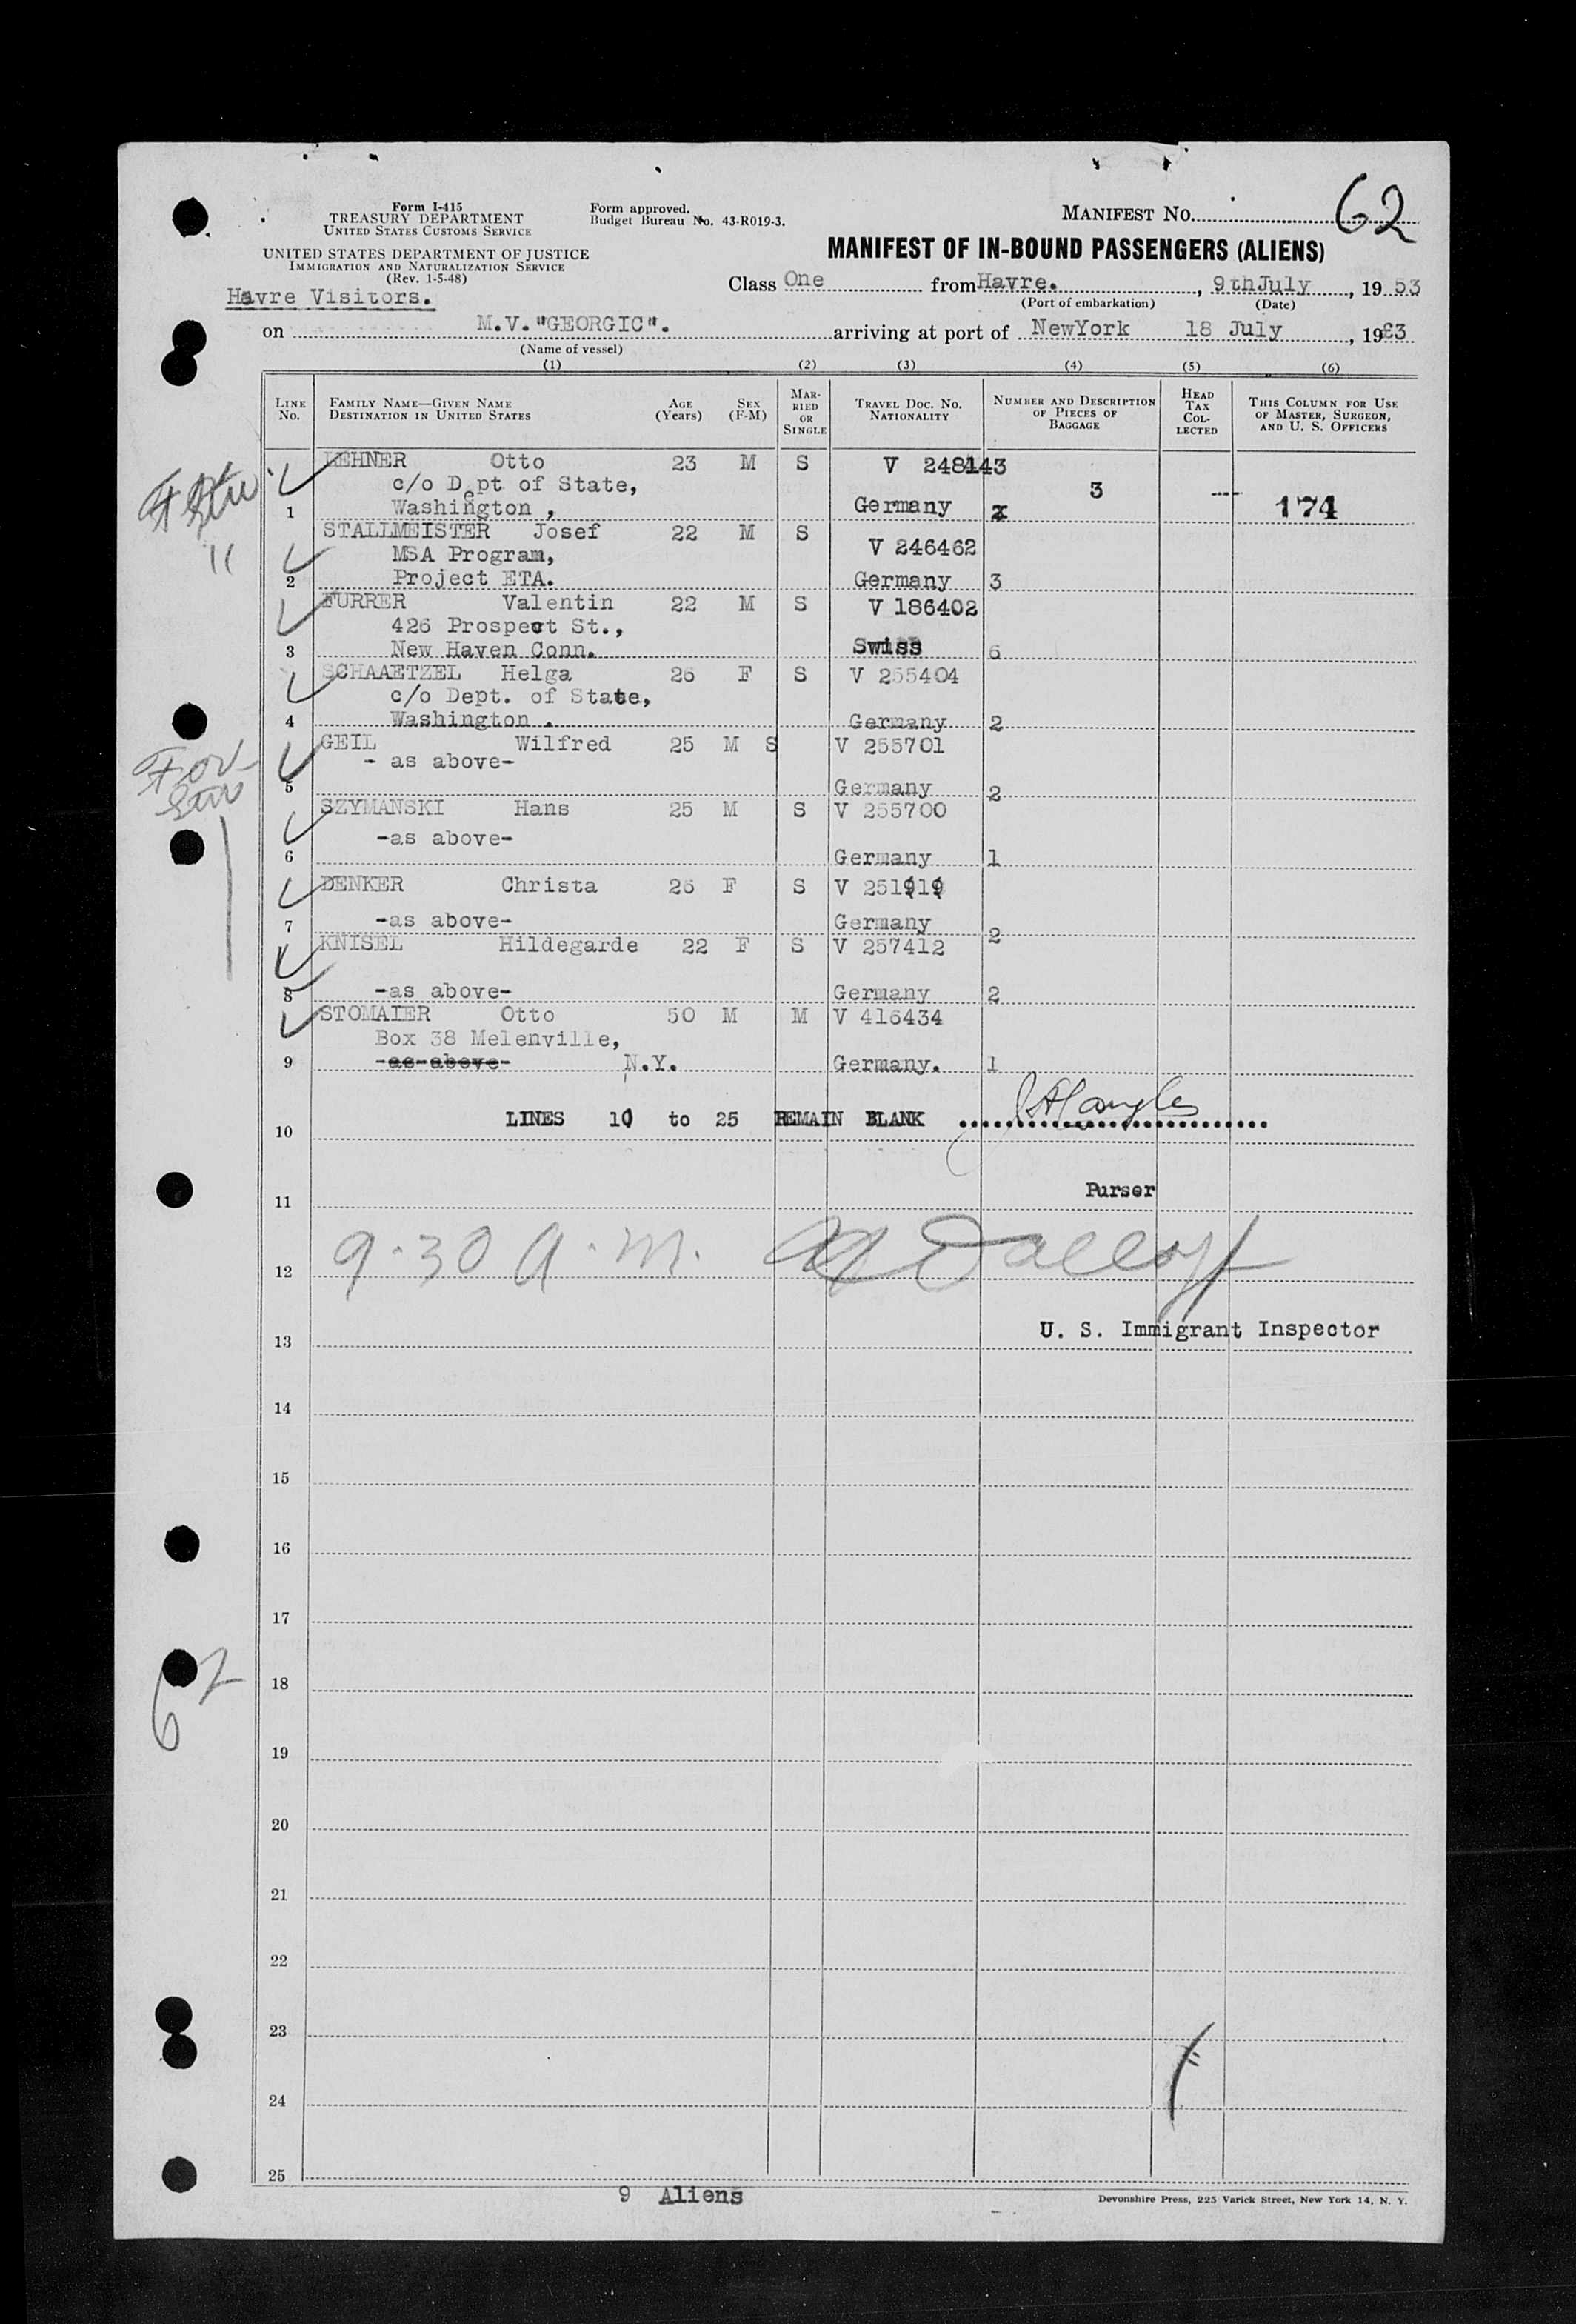 62
Form I-415
TREASURY DEPARTMENT
UNITED STATES CUSTOMS SERVICE
Form approved.
Budget Bureau No. 43-R019-3.
MANIFEST NO.
UNITED STATES DEPARTMENT OF JUSTICE
IMMIGRATION AND NATURALIZATION SERVICE
(Rev. 1-5-48)
MANIFEST OF IN-BOUND PASSENGERS (ALIENS)
Havre Visitors.
Class One from Havre. , 9thJuly , 19 53
(Port of embarkation) (Date)
on M.V."GEORGIC". arriving at port of NewYork 18 July , 1953
(Name of vessel)
(1) (2) (3) (4) (5) (6)
LINE No. FAMILY NAME—GIVEN NAME DESTINATION IN UNITED STATES AGE (Years) SEX (F-M) MARRIED OR SINGLE TRAVEL DOC. NO. NATIONALITY NUMBER AND DESCRIPTION OF PIECES OF BAGGAGE HEAD TAX COLLECTED THIS COLUMN FOR USE OF MASTER, SURGEON, AND U. S. OFFICERS
LEHNER Otto 23 M S V 248143
c/o Dept of State, 3 ---
1 Washington , Germany 174
STALLMEISTER Josef 22 M S
MSA Program, V 246462
2 Project ETA. Germany 3
FURRER Valentin 22 M S V 186402
426 Prospect St.,
3 New Haven Conn. Swiss 6
SCHAAETZEL Helga 26 F S V 255404
c/o Dept. of State,
4 Washington . Germany 2
GEIL Wilfred 25 M S V 255701
- as above-
5 Germany 2
For
SZYMANSKI Hans 25 M S V 255700
-as above-
6 Germany 1
DENKER Christa 26 F S V 251919
7 -as above- Germany 2
KNISEL Hildegarde 22 F S V 257412
8 -as above- Germany 2
STOMAIER Otto 50 M M V 416434
Box 38 Melenville,
9 -as above- N.Y. Germany. 1
LINES 10 to 25 REMAIN BLANK
10
Purser
11
12 9.30 A.M.
U. S. Immigrant Inspector
13
14
15
16
17
62
18
19
20
21
22
23
24
25
9 Aliens
Devonshire Press, 225 Varick Street, New York 14, N. Y.